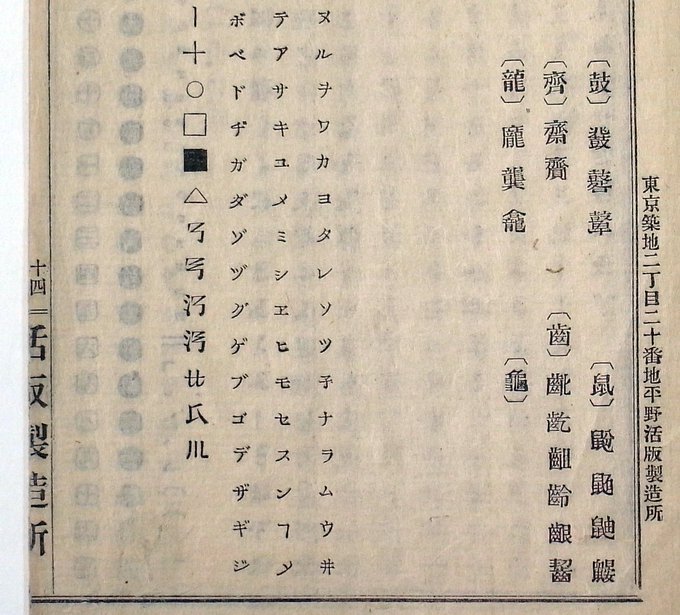 東京築地二丁目二十番地平野活版製造所
〔鼓〕鼛鼙〔鼠〕鼢鼬鼴
〔齊〕齋齎〔齒〕齕齟齡齦齧
〔龍〕龐龔龕〔龜〕
ヌルヲワカヨタレソツ子ナラムウ井
テアサキユメミシヱヒモセスンヿ〆
ボベドヂガダゾヅグゲブゴデザギジ
十○□■△
十四 活版製造所